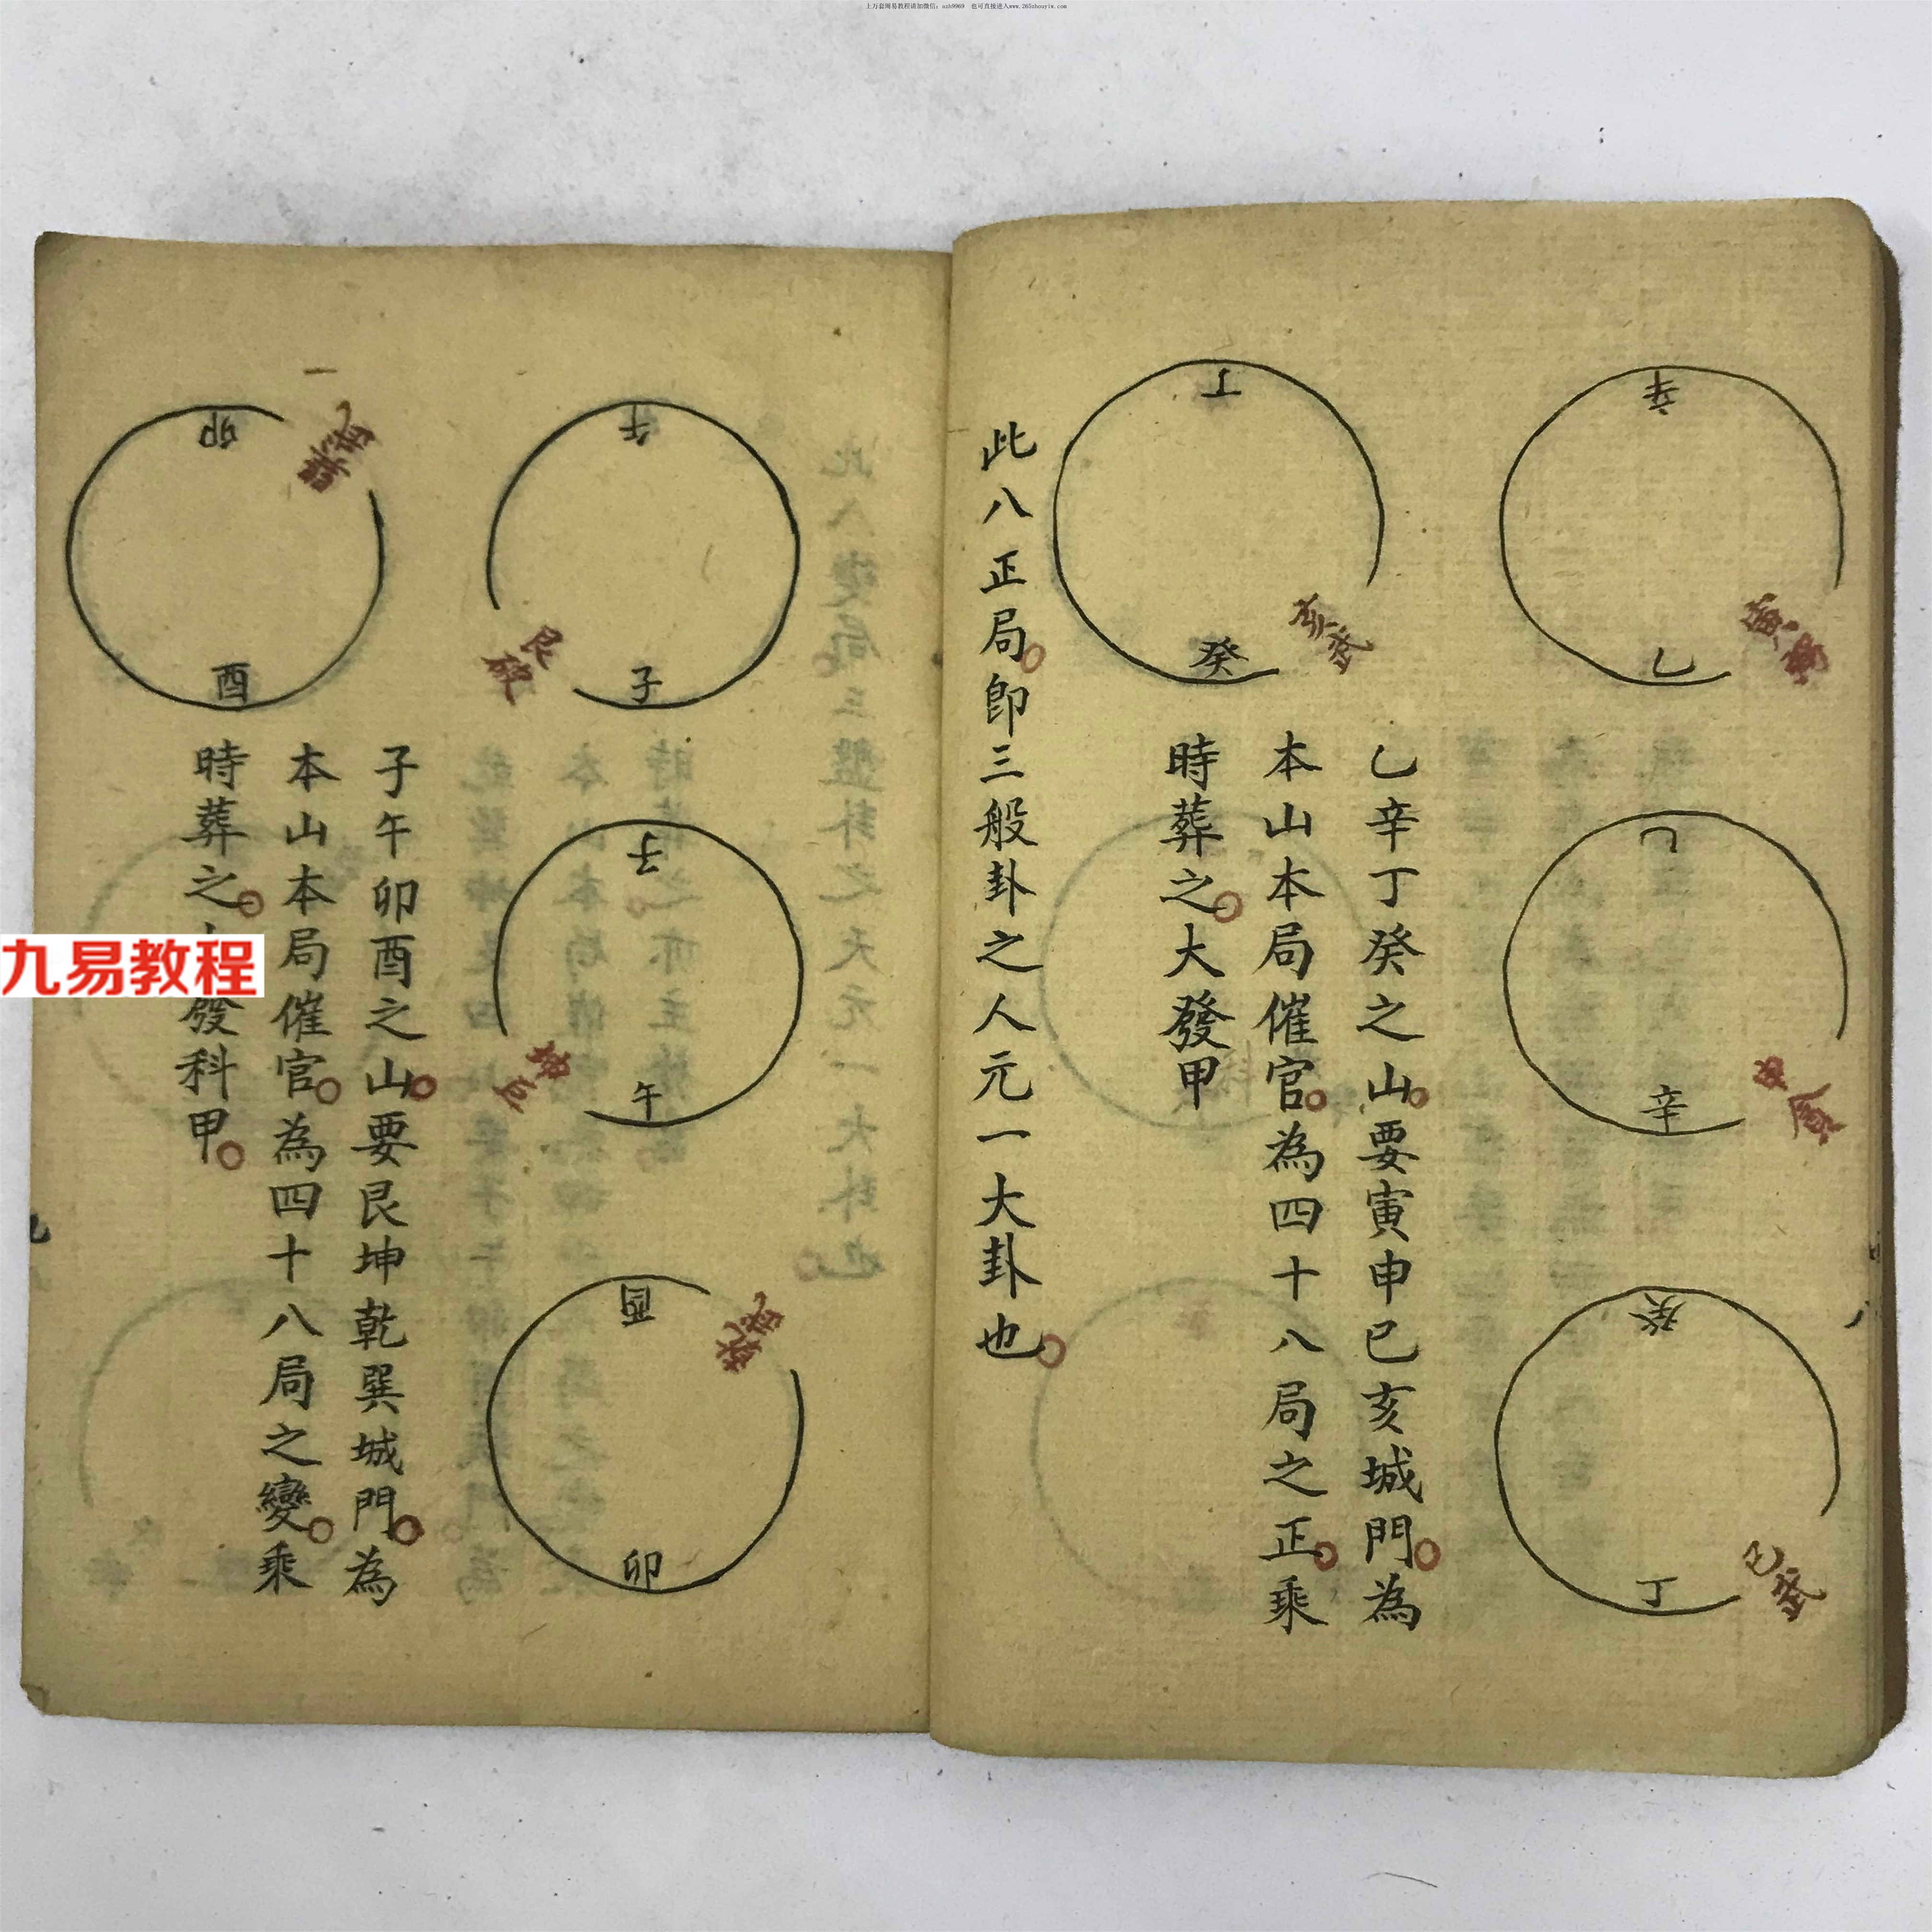 上万套周易教程请加微信：ozh9969　也可直接进入www.265zhouyiw.com
辛
乙
寅
乙
辛
申
癸
丁
巳武
乙辛丁癸之山要寅申巳亥城門為
本山本局催官為四十八局之正乘
時葬之大發甲
丁
癸
亥武
此八正局即三般卦之人元一大卦也
午
子
艮破
子
午
坤巨
酉
卯
乾
子午卯酉之山要艮坤乾巽城門為
本山本局催官為四十八局之變乘
時葬之
發科甲
卯
酉
九易教程